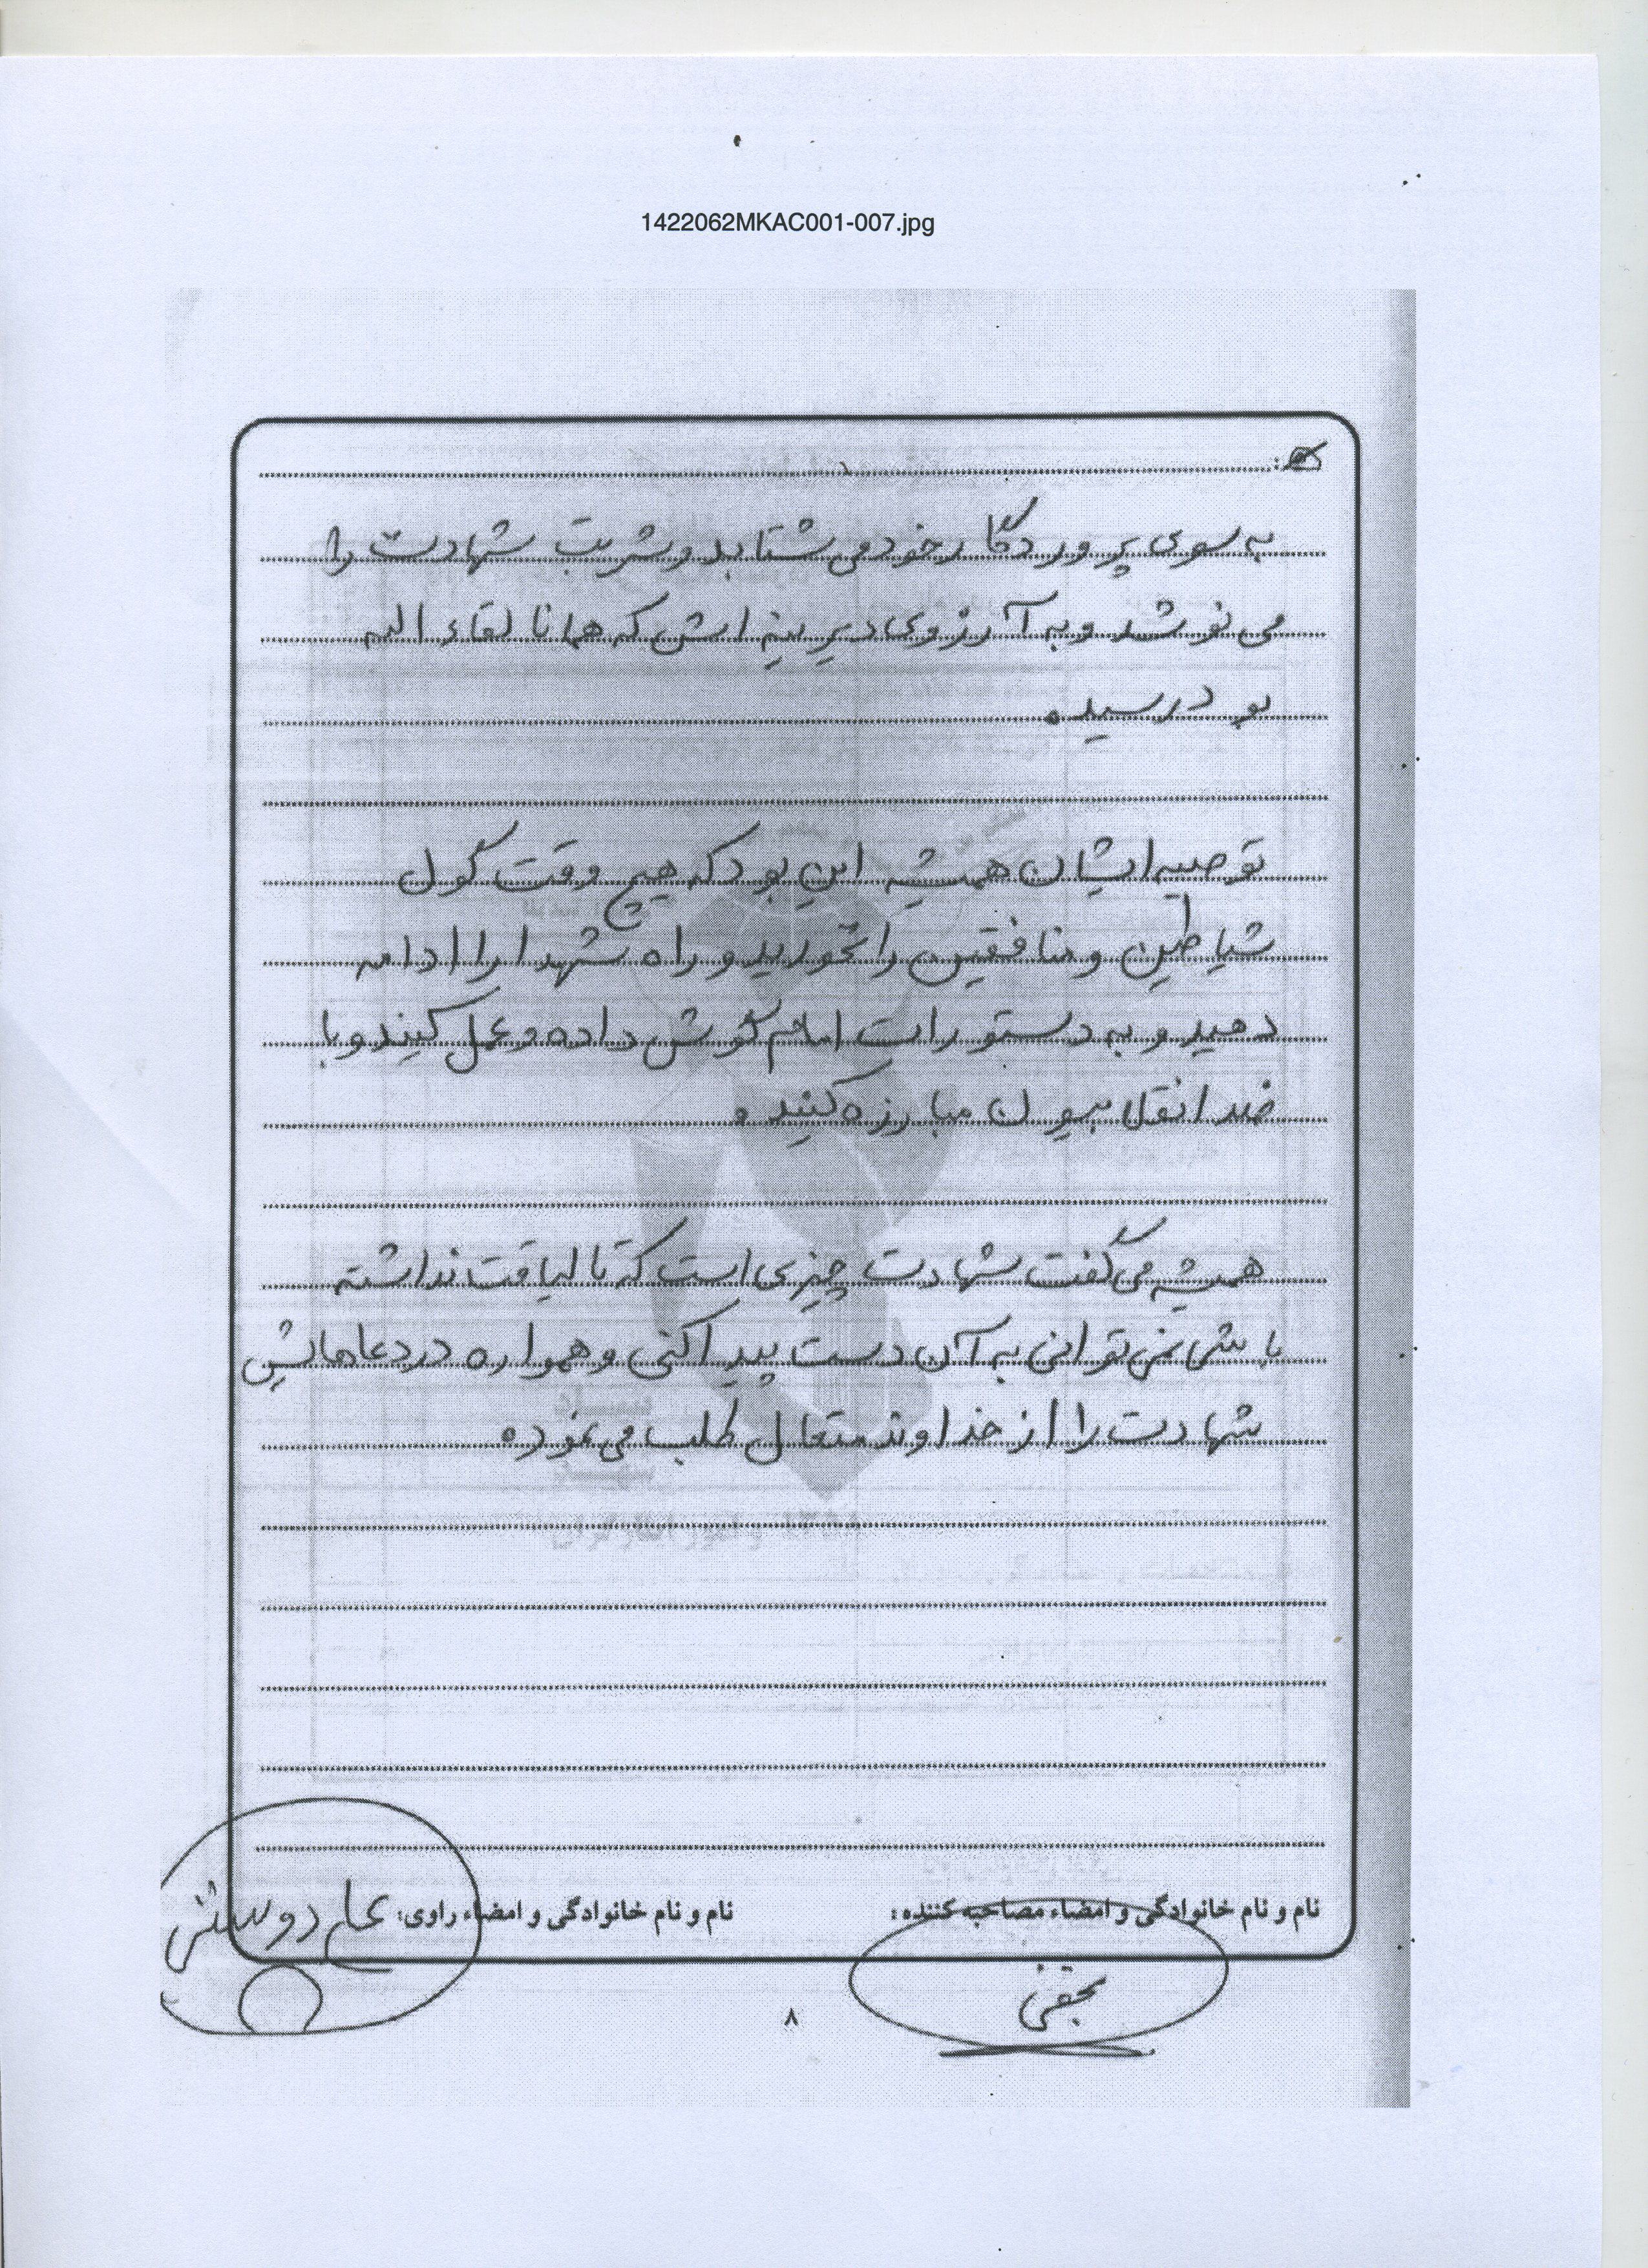 1422062MKAC001-007.jpg
به سوی پروردگار خود می شتابد و شربت شهادت را
می نوشد و به آرزوی دیرینه اش که همانا لقاء الله
بود رسید.
توصیه ایشان همیشه این بود که هیچ وقت گول
شیاطین و منافقین را نخورید و راه شهدا را ادامه
دهید و به دستورات امام گوش داده و عمل کنید و با
ضد انقلابیون مبارزه کنید.
همیشه می گفت شهادت چیزی است که تا لیاقت نداشته
باشی نمی توانی به آن دست پیدا کنی و همواره در دعاهایش
شهادت را از خداوند متعال طلب می نمود.
نام و نام خانوادگی و امضاء مصاحبه کننده:
نام و نام خانوادگی و امضاء راوی:
۸